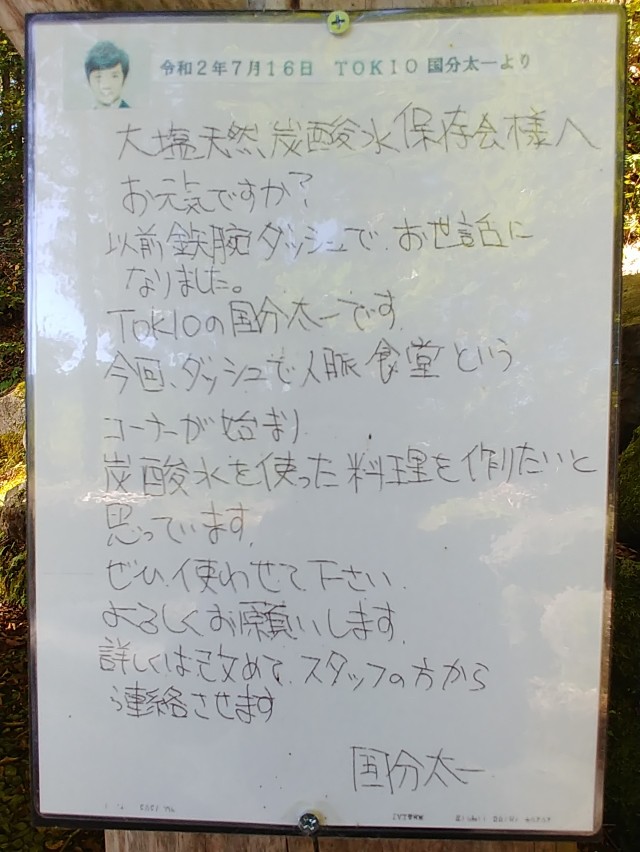 令和2年7月16日 TOKIO 国分太一より
大塩天然炭酸水保存会様へ
お元気ですか?
以前鉄腕ダッシュで お世話に
なりました。
TOKIOの国分太一です
今回、ダッシュで人脈食堂という
コーナーが始まり
炭酸水を使った料理を作りたいと
思っています
ぜひ、使わせて下さい
よろしくお願いします
詳しくは改めて スタッフの方から
ら連絡させます
国分太一